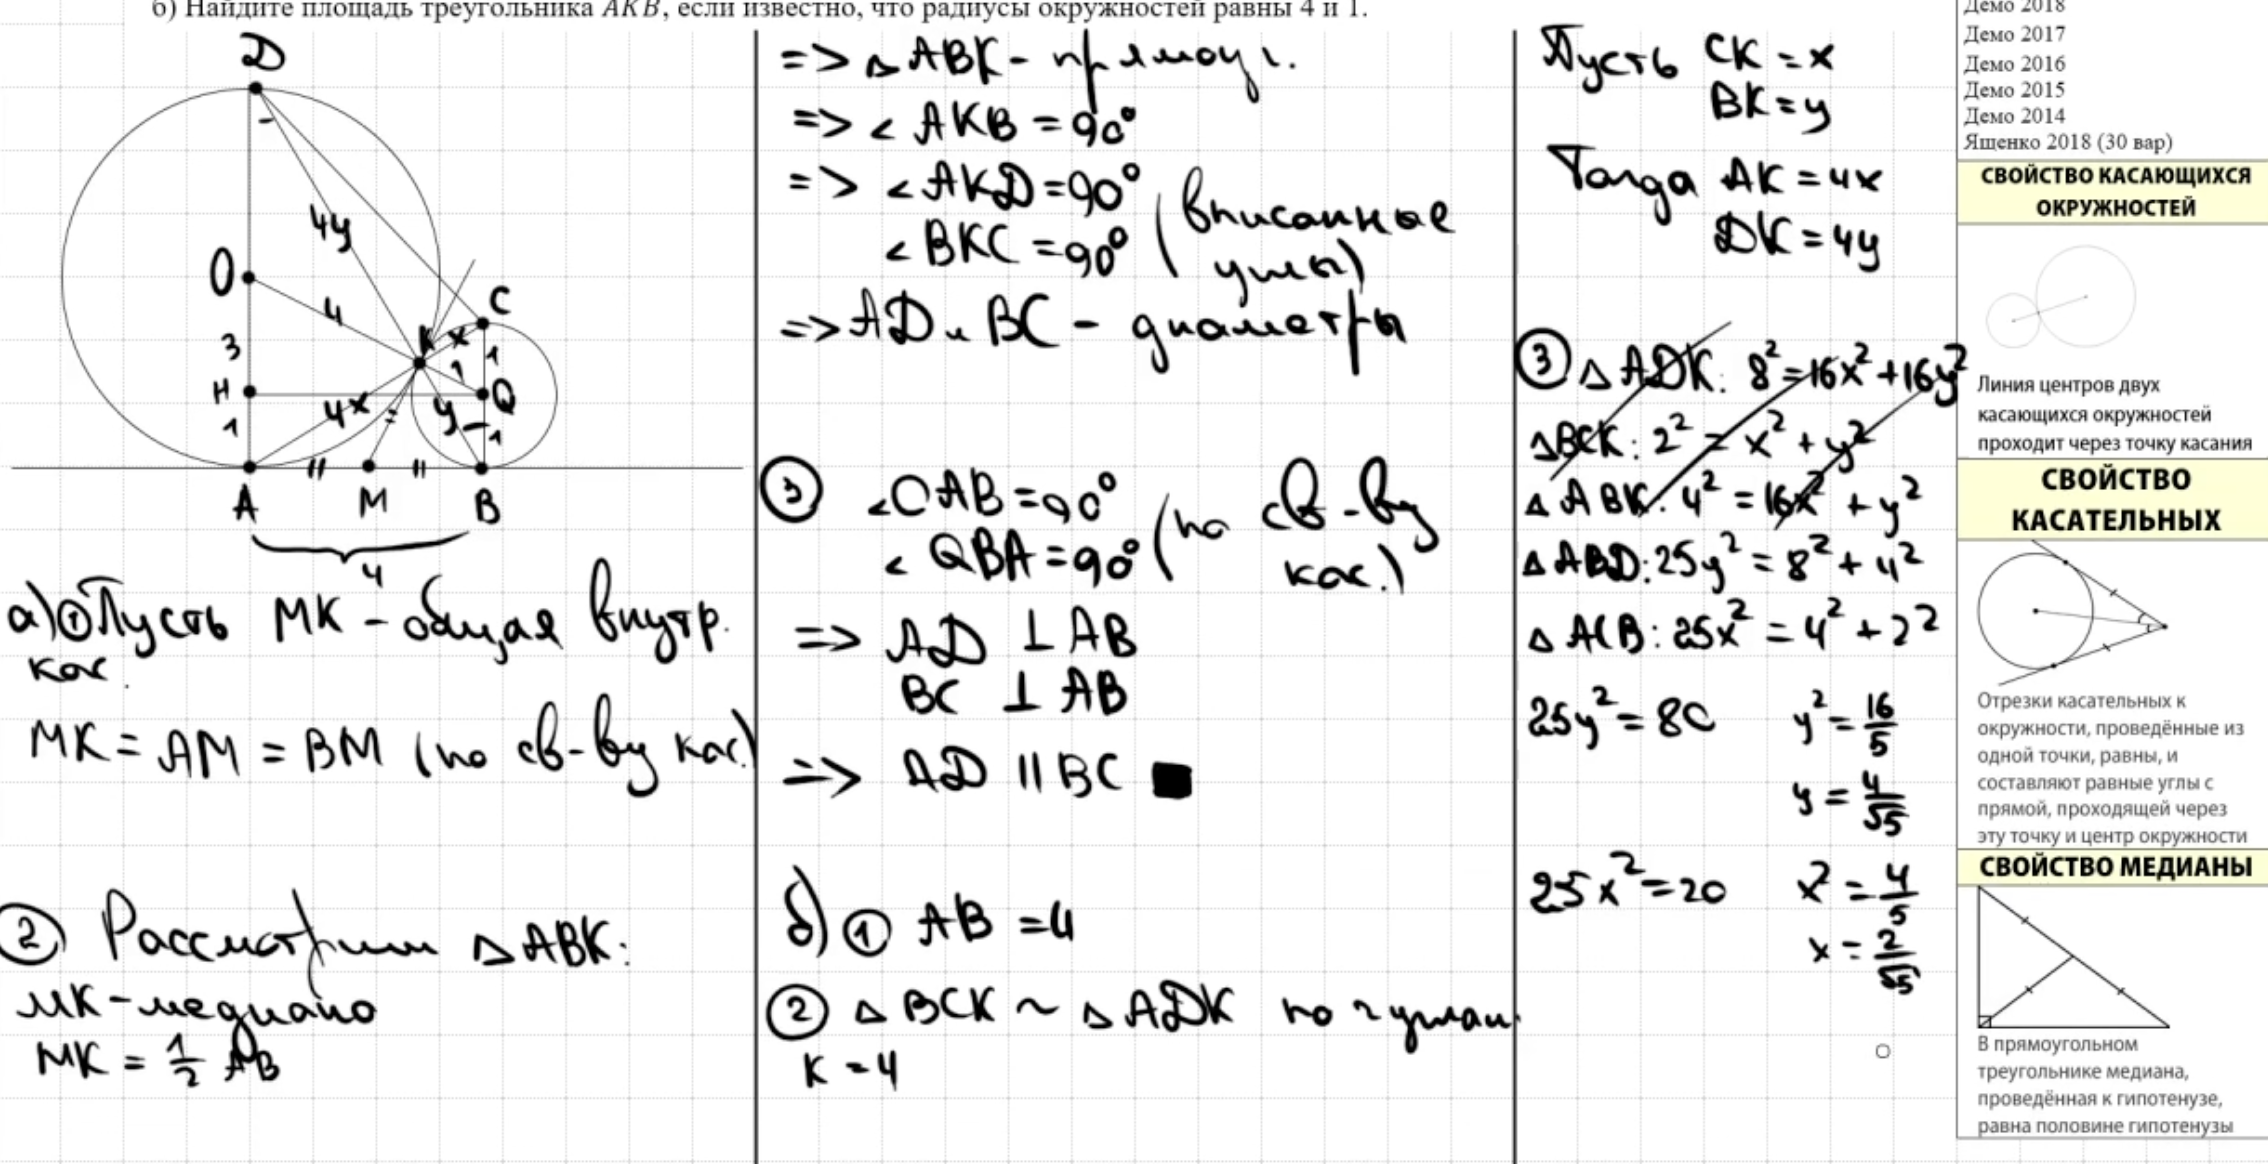 б) Найдите площадь треугольника AKB, если известно, что радиусы окружностей равны 4 и 1.
D
4y
O
4
C
K
x
1
3
1
H
Q
4x
=
y
1
1
A
M
B
4
а) ① Пусть MK - общая внутр.
кас.
MK = AM = BM (по св-ву кас.)
② Рассмотрим △ABK:
MK - медиана
MK = 1/2 AB
=> △ABK - прямоуг.
=> ∠AKB = 90°
=> ∠AKD = 90°
∠BKC = 90° (вписанные углы)
=> AD и BC - диаметры
③ ∠OAB = 90°
∠QBA = 90° (по св-ву кас.)
=> AD ⊥ AB
BC ⊥ AB
=> AD || BC ■
б) ① AB = 4
② △BCK ~ △ADK по 2 углам
K = 4
Пусть CK = x
BK = y
Тогда AK = 4x
DK = 4y
③ △ADK: 8² = 16x² + 16y²
△BCK: 2² = x² + y²
△ABK: 4² = 16x² + y²
△ABD: 25y² = 8² + 4²
△ACB: 25x² = 4² + 2²
25y² = 80 y² = 16/5
y = 4/√5
25x² = 20 x² = 4/5
x = 2/√5
Демо 2018
Демо 2017
Демо 2016
Демо 2015
Демо 2014
Ященко 2018 (30 вар)
СВОЙСТВО КАСАЮЩИХСЯ
ОКРУЖНОСТЕЙ
Линия центров двух
касающихся окружностей
проходит через точку касания
СВОЙСТВО
КАСАТЕЛЬНЫХ
Отрезки касательных к
окружности, проведённые из
одной точки, равны, и
составляют равные углы с
прямой, проходящей через
эту точку и центр окружности
СВОЙСТВО МЕДИАНЫ
В прямоугольном
треугольнике медиана,
проведённая к гипотенузе,
равна половине гипотенузы